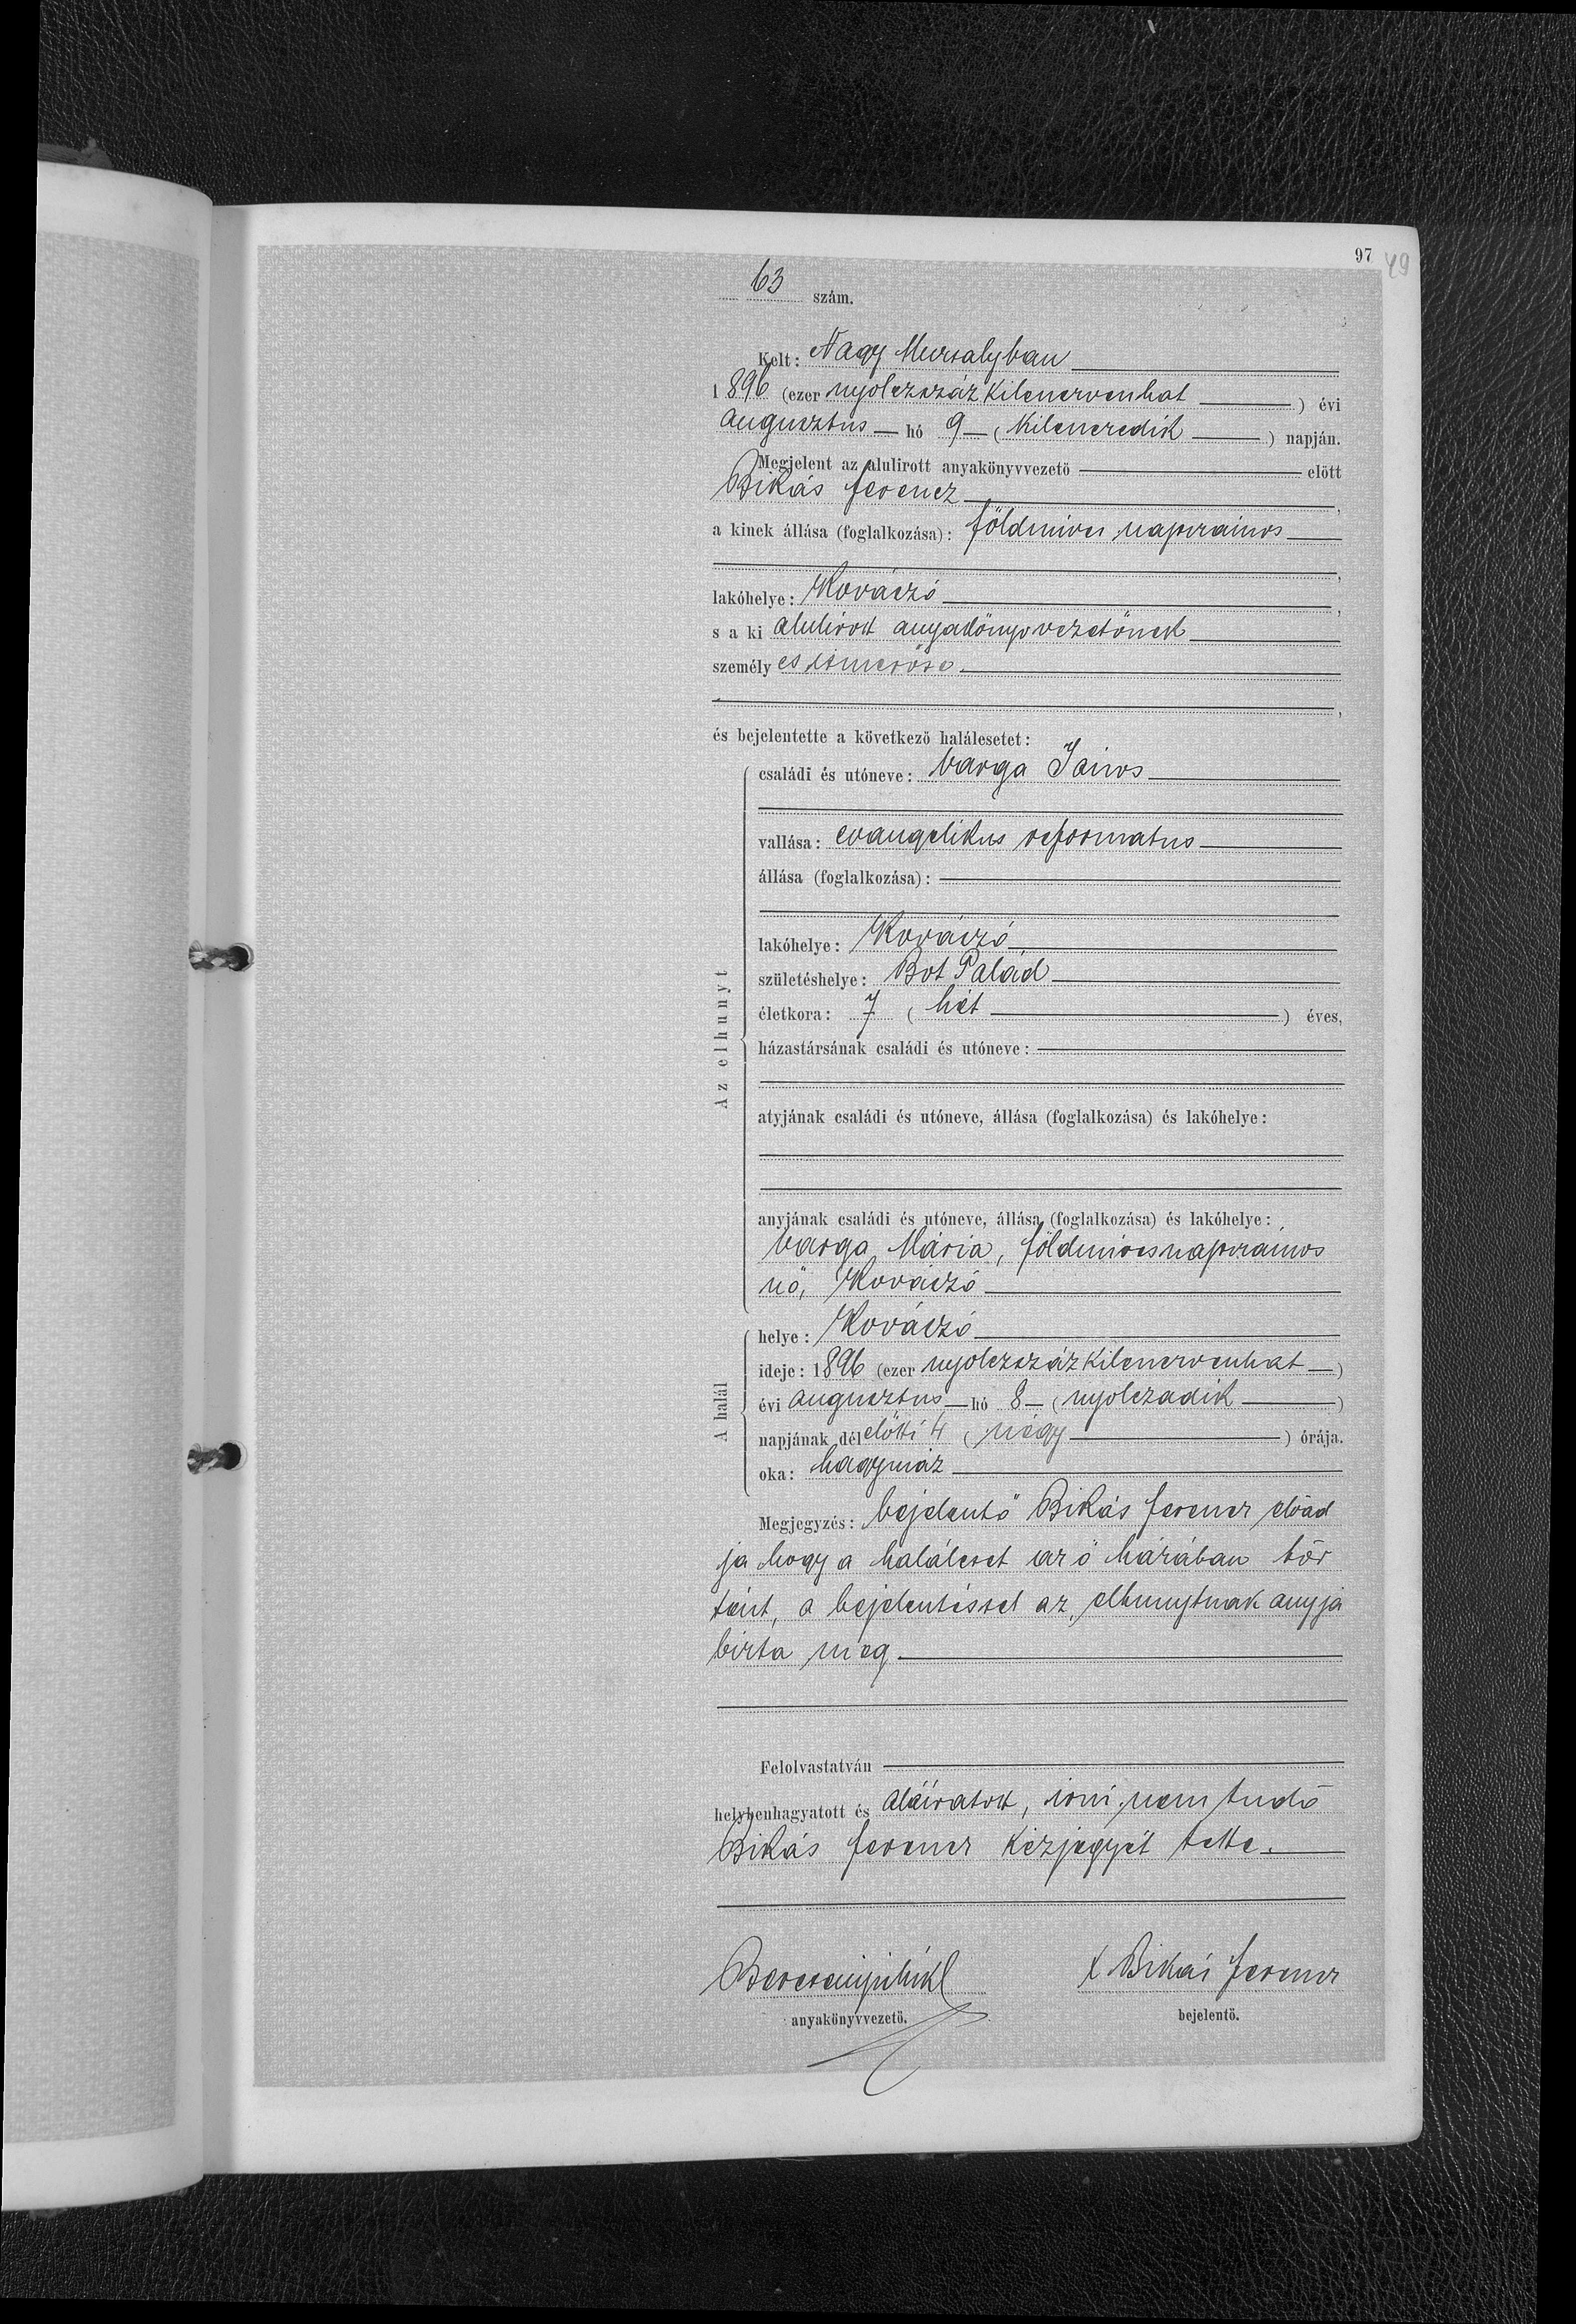 97 49
63 szám.
Kelt: Nagy Muzsalyban
1896 (ezer nyolczszáz kilenczvenhat) évi
augusztus hó 9 (kilenczedik) napján.
Megjelent az alulirott anyakönyvvezető előtt
Bikás Ferencz,
a kinek állása (foglalkozása): földmíves napszámos
,
lakóhelye: Kovászó,
s a ki alulírott anyakönyvvezetőnek
személyes ismerőse
,
és bejelentette a következő halálesetet:
Az elhunyt
családi és utóneve: Varga János
vallása: evangelikus reformatus
állása (foglalkozása):
lakóhelye: Kovászó
születéshelye: Bot Palád
életkora: 7 (hét) éves,
házastársának családi és utóneve:
atyjának családi és utóneve, állása (foglalkozása) és lakóhelye:
anyjának családi és utóneve, állása (foglalkozása) és lakóhelye:
Varga Mária, földmívesnapszámos
nő, Kovászó
A halál
helye: Kovászó
ideje: 1896 (ezer nyolczszázkilenczvenhat)
évi augusztus hó 8 (nyolczadik)
napjának délelőtti 4 (négy) órája.
oka: hagymáz
Megjegyzés: bejelentő Bikás Ferencz előad
ja hogy a haláleset az ő házában tör
tént, a bejelentéssel az elhunytnak anyja
bízta meg.
Felolvastatván
helybenhagyatott és aláíratott, írni nem tudó
Bikás Ferencz kézjegyét tette.
x Bikás Ferencz
anyakönyvvezető. bejelentő.